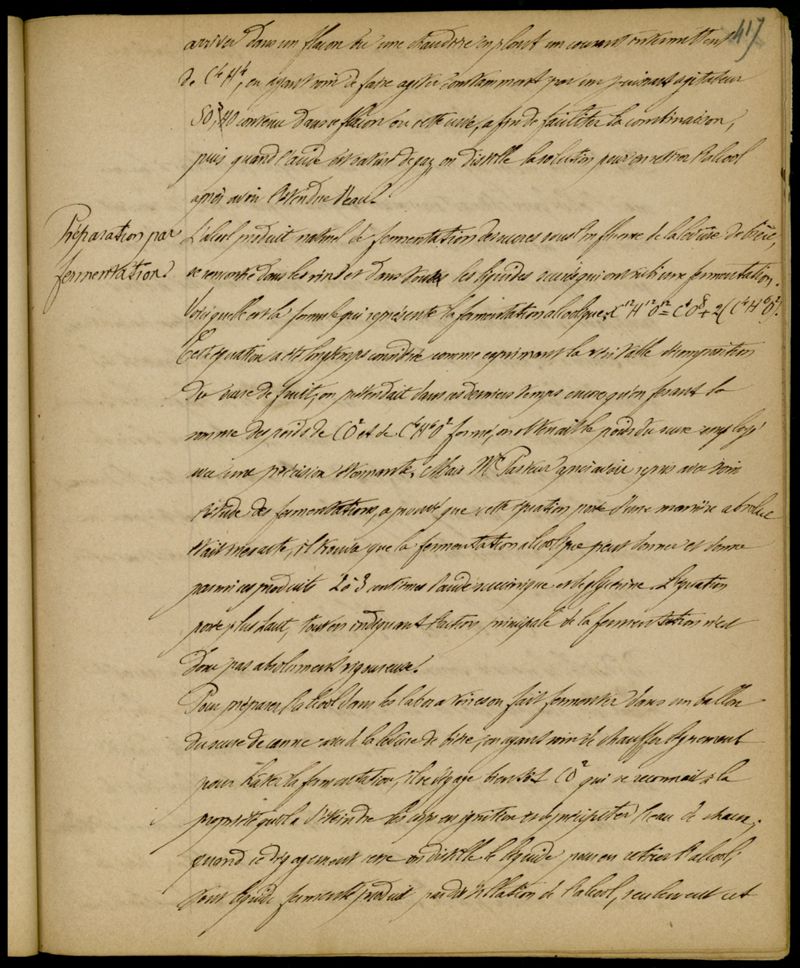 417
arriver dans un flacon ou une chaudière en plomb un courant intermittent
de C⁴H⁴, en ayant soin de faire agiter constamment par un puissant agitateur
SO³,HO contenu dans ce flacon ou cette cuve, afin de faciliter la combinaison,
puis quand l'acide est saturé de gaz on distille la solution pour en retirer l'alcool
après avoir étendu d'eau.
Préparation par
fermentation.
L'alcool produit naturel de fermentation des sucres sous l'influence de la levûre de bière,
se rencontre dans les vins et dans toutes les liquides sucrés qui ont subi une fermentation.
Voici quelle est la formule qui représente la fermentation alcoolique: C¹²H¹²O¹² = C⁴O⁸ + 2(C⁴H⁶O²).
Cette équation a été longtemps considérée comme exprimant la véritable décomposition
du sucre de fruit, on prétendait dans ces derniers temps encore qu'en faisant la
somme des poids de CO² et de C⁴H⁶O² formé, on obtenait le poids du sucre employé
avec une précision étonnante. Mais Mr Pasteur après avoir repris avec soin
l'étude des fermentations, a prouvé que cette équation posée d'une manière absolue
était inexacte, il trouva que la fermentation alcoolique peut donner et donne
parmi ces produits 2 à 3 centièmes d'acide succinique et de glycérine. L'équation
posée plus haut, tout en indiquant l'action principale de la fermentation n'est
donc pas absolument rigoureuse.
Pour préparer l'alcool dans les laboratoires on fait fermenter dans un ballon
du sucre de canne avec de la levûre de bière, en ayant soin de chauffer légèrement
pour hâter la fermentation, il se dégage bientôt CO² qui se reconnaît à la
propriété qu'il a d'éteindre les corps en ignition et de précipiter l'eau de chaux;
quand ce dégagement cesse on distille le liquide pour en retirer l'alcool;
tout liquide fermenté produit par distillation de l'alcool, seulement cet